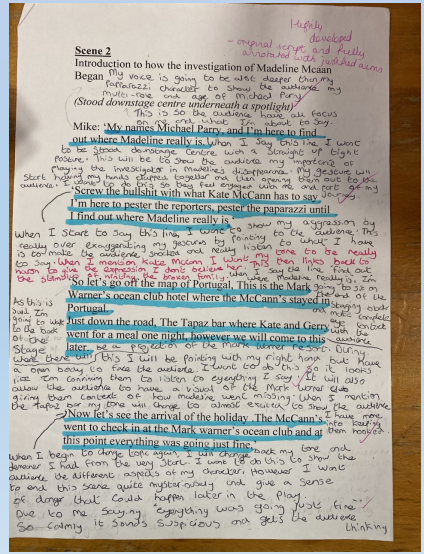 Highly
developed
- original script and fully
annotated with justified aims
Scene 2
Introduction to how the investigation of Madeline Mcaan
Began My voice is going to be a lot deeper than my
paparazzi character to show the audience my
multi-role and age of Michael Parry
(Stood downstage centre underneath a spotlight)
This is so the audience have all focus
on me and what I'm about to say.
Mike: 'My names Michael Parry, and I'm here to find
out where Madeline really is. When I say this line, I want
to be stood downstage centre with a straight up tight
posture. This will be to show the audience my importance of
playing the investigator in madelines disappearance. My gesture will
start having my hands clenched together and then opening them out to the
audience. I want to do this so they feel engaged with me and part of my
journey.
'Screw the bullshit with what Kate McCann has to say
I'm here to pester the reporters, pester the paparazzi until
I find out where Madeline really is
When I start to say this line, I want to show my aggression by
really over exaggerating my gestures by pointing at the audience. This
is to make the audience shocked and really listen to what I have
to say. When I mention Kate Mcann I want my tone to be really
harsh to give the expression I don't believe her. This then links back to
the stimulus of missing, the broken family. When I say the line find out
where madeline really is, I'm
'So let's go off the map of Portugal, This is the Mark
going to sit on
Warner's ocean club hotel where the McCann's stayed in
the end of the
Portugal.
staging block
and make complete
eye contact
with the
audience
As this is
said, I'm
going to walk
to the back
of the
stage
Just down the road, The Tapaz bar where Kate and Gerry
went for a meal one night, however we will come to this
later.
will be a projection of the mark warner resort. During
this I will be pointing with my right hand but have
a open body to face the audience. I want to do this so it looks
like I'm confining them to listen to everything I say. It will also
allow the audience to have a visual of the Mark ocean club
giving them context of how madeline went missing. When I mention
the tapaz bar my tone will change to almost excited, to show the audience
I have more
info keeping
them hooked.
'Now let's see the arrival of the holiday. The McCann's
went to check in at the Mark warner's ocean club and at
this point everything was going just fine.'
When I begin to change topic again, I will change back my tone and
demenor I had from the very start. I want to do this to show the
audience the different aspects of my character. However I want
to end this scene quite mysteriously and give a sense
of danger that could happen later in the play.
Due to me saying 'everything was going just fine'
So calmly it sounds suspicious and gets the audience
thinking